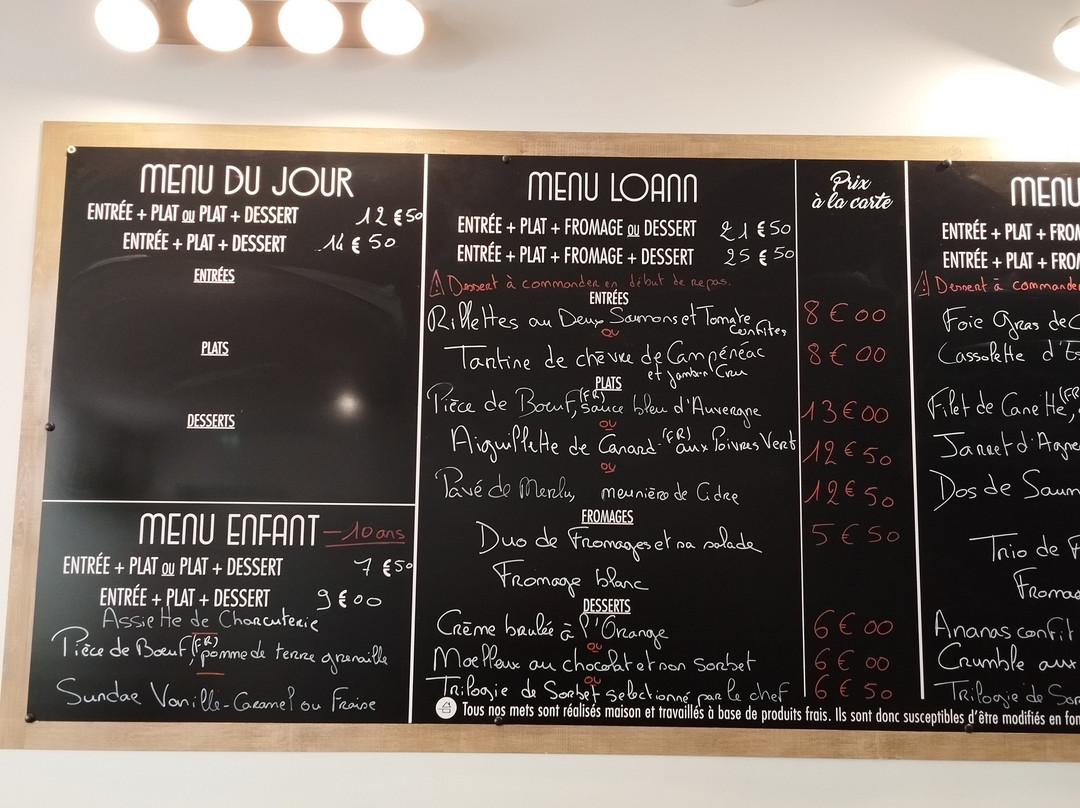 MENU DU JOUR
ENTRÉE + PLAT ou PLAT + DESSERT 12 €50
ENTRÉE + PLAT + DESSERT 14 € 50
ENTRÉES
PLATS
DESSERTS
MENU ENFANT -10 ans
ENTRÉE + PLAT ou PLAT + DESSERT 7 €50
ENTRÉE + PLAT + DESSERT 9 €00
Assiette de Charcuterie
Pièce de Bœuf (FR), pomme de terre grenaille
Sundae Vanille-Caramel ou Fraise
MENU LOANN
ENTRÉE + PLAT + FROMAGE ou DESSERT 21 €50
ENTRÉE + PLAT + FROMAGE + DESSERT 25 €50
Prix
à la carte
⚠ Dessert à commander en début de repas.
ENTRÉES
Rillettes au Deux Saumons et Tomate 8 €00
confites
ou
Tartine de chèvre de Campénéac 8 €00
et jambon Cru
PLATS
Pièce de Bœuf (FR), sauce bleu d'Auvergne 13 €00
ou
Aiguillette de Canard (FR) aux Poivres Vert 12 €50
ou
Pavé de Merlu, meunière de Cidre 12 €50
FROMAGES
Duo de Fromages et sa salade 5 €50
Fromage blanc
DESSERTS
Crème brulée à l'Orange 6 €00
ou
Moelleux au chocolat et son Sorbet 6 €00
ou
Trilogie de Sorbet selectionné par le chef 6 €50
MENU
ENTRÉE + PLAT + FRO
ENTRÉE + PLAT + FRO
⚠ Dessert à commander
Foie Gras de C
Cassolette d'Es
Filet de Canette (FR
Jarret d'Agne
Dos de Saum
Trio de F
Fromag
Ananas confit
Crumble aux
Trilogie de Sor
Tous nos mets sont réalisés maison et travaillés à base de produits frais. Ils sont donc susceptibles d'être modifiés en fon